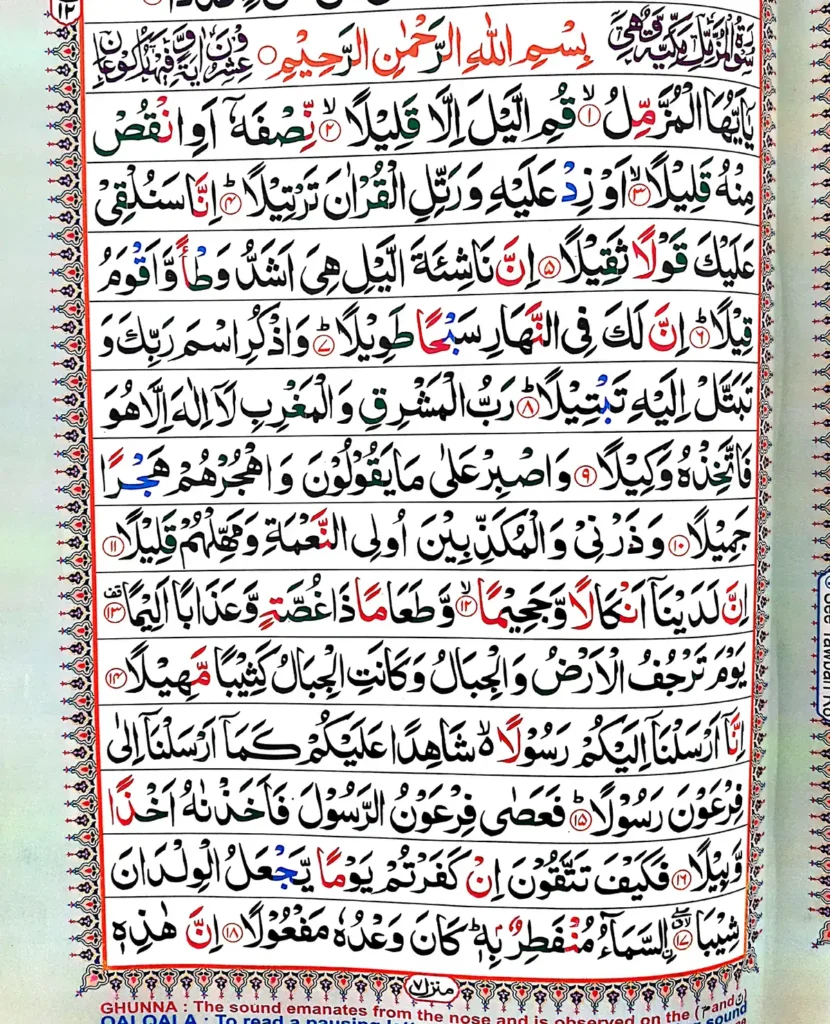 سُوْرَةُ الْمُزَّمِّلِ مَكِّيَّةٌ وَّهِيَ بِسْمِ اللّٰهِ الرَّحْمٰنِ الرَّحِيْمِ عِشْرُوْنَ اٰيَةً وَّفِيْهَا رُكُوْعَانِ
يٰۤاَيُّهَا الْمُزَّمِّلُ ۙ﴿۱﴾ قُمِ الَّيْلَ اِلَّا قَلِيْلًا ۙ﴿۲﴾ نِّصْفَهٗۤ اَوِ انْقُصْ
مِنْهُ قَلِيْلًا ۙ﴿۳﴾ اَوْ زِدْ عَلَيْهِ وَرَتِّلِ الْقُرْاٰنَ تَرْتِيْلًا ؕ﴿۴﴾ اِنَّا سَنُلْقِيْ
عَلَيْكَ قَوْلًا ثَقِيْلًا ﴿۵﴾ اِنَّ نَاشِئَةَ الَّيْلِ هِيَ اَشَدُّ وَطْاً وَّاَقْوَمُ
قِيْلًا ؕ﴿۶﴾ اِنَّ لَكَ فِي النَّهَارِ سَبْحًا طَوِيْلًا ؕ﴿۷﴾ وَاذْكُرِ اسْمَ رَبِّكَ وَ
تَبَتَّلْ اِلَيْهِ تَبْتِيْلًا ؕ﴿۸﴾ رَبُّ الْمَشْرِقِ وَالْمَغْرِبِ لَاۤ اِلٰهَ اِلَّا هُوَ
فَاتَّخِذْهُ وَكِيْلًا ﴿۹﴾ وَاصْبِرْ عَلٰى مَا يَقُوْلُوْنَ وَاهْجُرْهُمْ هَجْرًا
جَمِيْلًا ﴿۱۰﴾ وَذَرْنِيْ وَالْمُكَذِّبِيْنَ اُولِي النَّعْمَةِ وَمَهِّلْهُمْ قَلِيْلًا ﴿۱۱﴾
اِنَّ لَدَيْنَاۤ اَنْكَالًا وَّجَحِيْمًا ۙ﴿۱۲﴾ وَّطَعَامًا ذَا غُصَّةٍ وَّعَذَابًا اَلِيْمًا ۗ﴿۱۳﴾
يَوْمَ تَرْجُفُ الْاَرْضُ وَالْجِبَالُ وَكَانَتِ الْجِبَالُ كَثِيْبًا مَّهِيْلًا ﴿۱۴﴾
اِنَّاۤ اَرْسَلْنَاۤ اِلَيْكُمْ رَسُوْلًا ۙ۬ شَاهِدًا عَلَيْكُمْ كَمَاۤ اَرْسَلْنَاۤ اِلٰى
فِرْعَوْنَ رَسُوْلًا ؕ﴿۱۵﴾ فَعَصٰى فِرْعَوْنُ الرَّسُوْلَ فَاَخَذْنٰهُ اَخْذًا
وَّبِيْلًا ﴿۱۶﴾ فَكَيْفَ تَتَّقُوْنَ اِنْ كَفَرْتُمْ يَوْمًا يَّجْعَلُ الْوِلْدَانَ
شِيْبَا ﴿۱۷﴾ اۨلسَّمَآءُ مُنْفَطِرٌۢ بِهٖ ؕ كَانَ وَعْدُهٗ مَفْعُوْلًا ﴿۱۸﴾ اِنَّ هٰذِهٖ
منزل ۷
GHUNNA : The sound emanates from the nose and is observed on the (م and ن)
QALQALA : To read a pausing